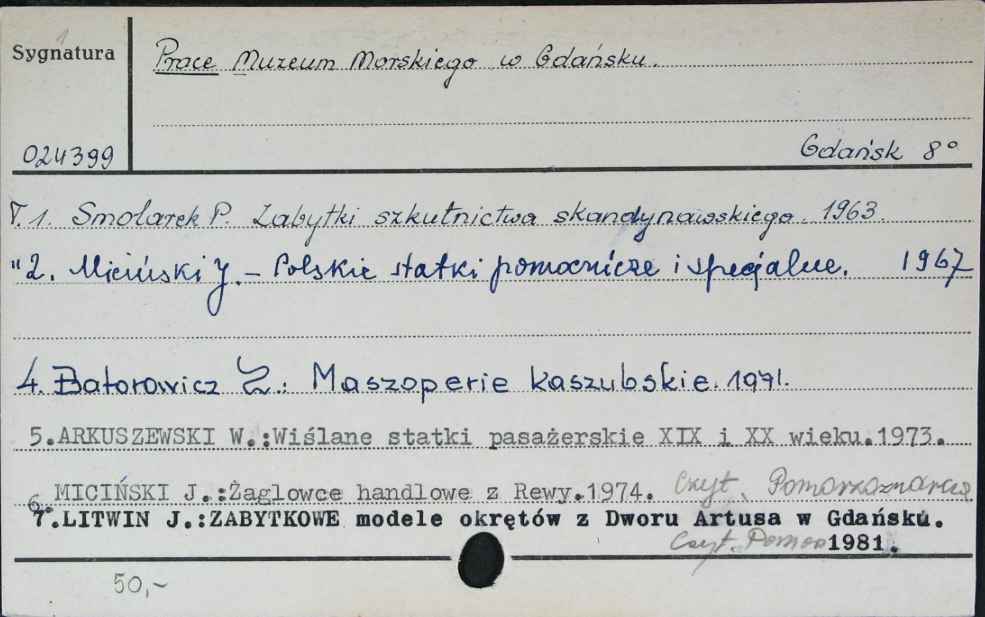 Sygnatura
Prace Muzeum Morskiego w Gdańsku.
024399
Gdańsk 8°
T.1. Smolarek P. Zabytki szkutnictwa skandynawskiego. 1963.
"2. Miciński J. – Polskie statki pomocnicze i specjalne. 1967
4. Batorowicz Z.: Maszoperie kaszubskie. 1971.
5.ARKUSZEWSKI W.:Wiślane statki pasażerskie XIX i XX wieku.1973.
6. MICIŃSKI J.:Żaglowce handlowe z Rewy.1974. Czyt. Pomorzoznawcza
7.LITWIN J.:ZABYTKOWE modele okrętów z Dworu Artusa w Gdańsku.
Czyt. Pomor 1981.
50,-